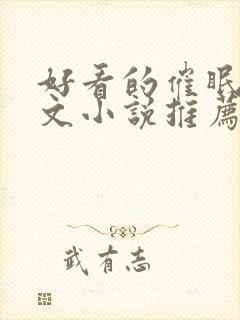 好看的催眠
文小说推荐
武有志